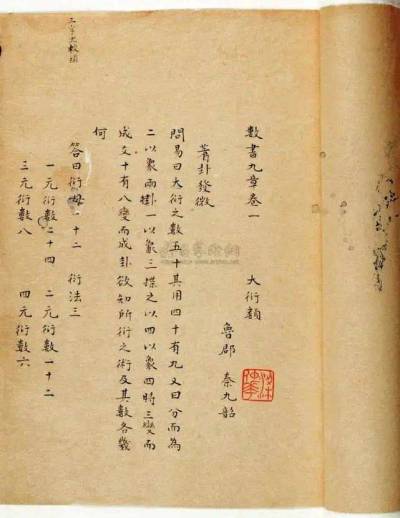 數書九章卷一　大衍類
魯郡　秦九韶
蓍卦發微
問易曰大衍之數五十其用四十有九又曰分而為
二以象兩卦一以象三揲之以四以象四時三變而
成爻十有八變而成卦欲知所衍之術及其數各幾
何
答曰衍母一十二　衍法三
一元衍數二十四　二元衍數一十二
三元衍數八　四元衍數六